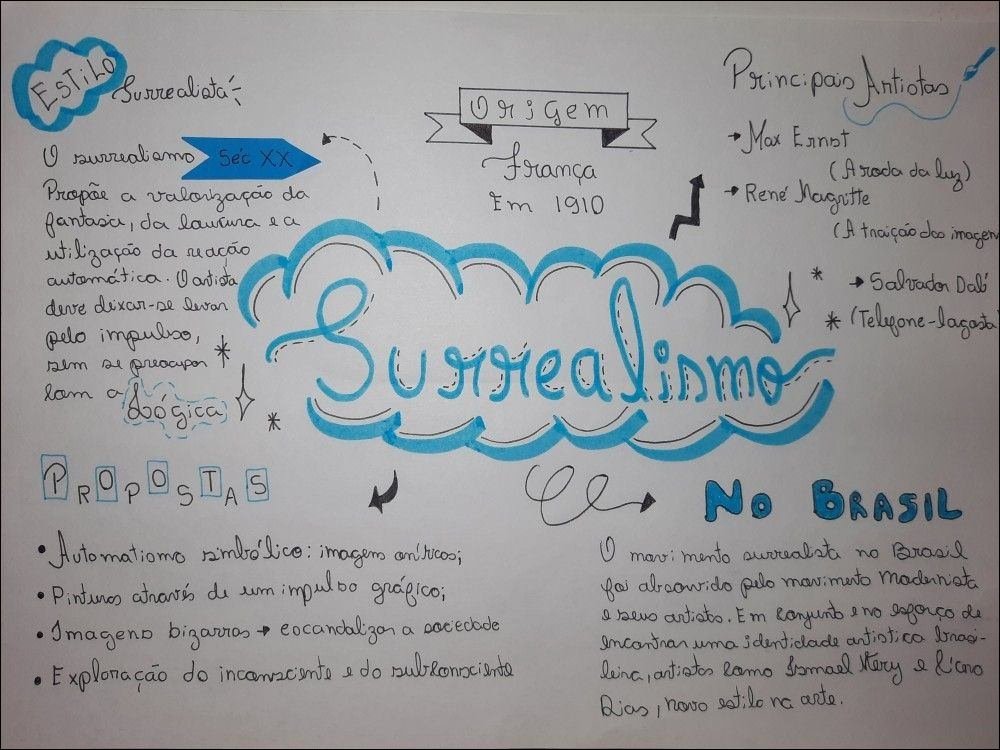 ESTILO
Surrealista
O surrealismo Séc XX
Propõe a valorização da
fantasia, da loucura e a
utilização da reação
automática. O artista
deve deixar-se levar
pelo impulso,
sem se preocupar
com a
Lógica
Origem
França
Em 1910
Principais Artistas
Max Ernst
(A roda da luz)
René Magritte
(A traição das imagens
Salvador Dalí
(Telefone-lagosta
Surrealismo
PROPOSTAS
• Automatismo simbólico: imagens oníricas;
• Pinturas através de um impulso gráfico;
• Imagens bizarras → escandalizar a sociedade
• Exploração do inconsciente e do subconsciente
NO BRASIL
O movimento surrealista no Brasil
foi absorvido pelo movimento modernista
e seus artistas. Em conjunto e no esforço de
encontrar uma identidade artistica brasi-
leira, artistas como Ismael Nery e Cícero
Dias, novo estilo na arte.